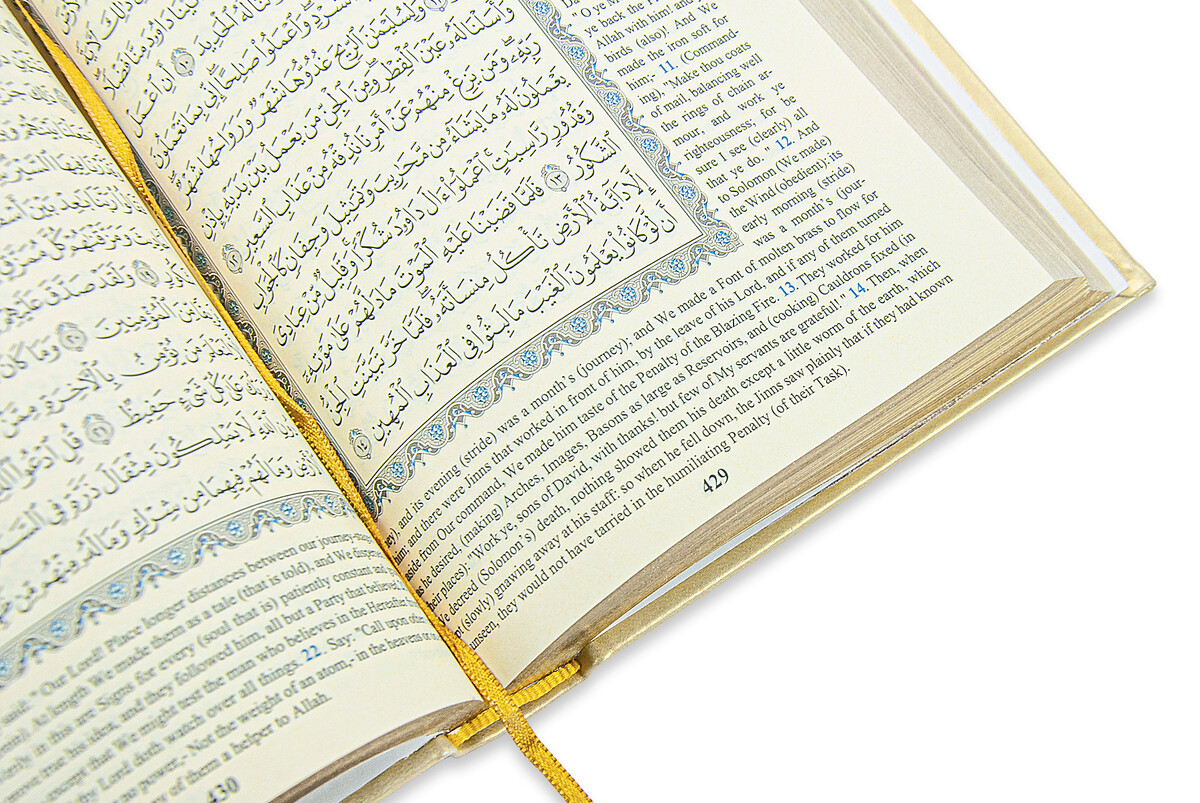 لَهُ ٱلْحَدِيدَ ١٠ أَنِ ٱعْمَلْ
ٱلسَّرْدِ وَٱعْمَلُوا۟ صَٰلِحًا إِنِّى بِمَا تَعْمَلُونَ
وَلِسُلَيْمَٰنَ ٱلرِّيحَ غُدُوُّهَا شَهْرٌ وَرَوَاحُهَا شَهْرٌ
وَأَسَلْنَا لَهُۥ عَيْنَ ٱلْقِطْرِ وَمِنَ ٱلْجِنِّ مَن يَعْمَلُ بَيْنَ يَدَيْهِ بِإِذْنِ
رَبِّهِۦ وَمَن يَزِغْ مِنْهُمْ عَنْ أَمْرِنَا نُذِقْهُ مِنْ عَذَابِ ٱلسَّعِيرِ ١٢
يَعْمَلُونَ لَهُۥ مَا يَشَآءُ مِن مَّحَٰرِيبَ وَتَمَٰثِيلَ وَجِفَانٍ كَٱلْجَوَابِ
وَقُدُورٍ رَّاسِيَٰتٍ ٱعْمَلُوٓا۟ ءَالَ دَاوُۥدَ شُكْرًا وَقَلِيلٌ مِّنْ عِبَادِىَ
ٱلشَّكُورُ ١٣ فَلَمَّا قَضَيْنَا عَلَيْهِ ٱلْمَوْتَ مَا دَلَّهُمْ عَلَىٰ مَوْتِهِۦٓ
إِلَّا دَآبَّةُ ٱلْأَرْضِ تَأْكُلُ مِنسَأَتَهُۥ فَلَمَّا خَرَّ تَبَيَّنَتِ ٱلْجِنُّ
أَن لَّوْ كَانُوا۟ يَعْلَمُونَ ٱلْغَيْبَ مَا لَبِثُوا۟ فِى ٱلْعَذَابِ ٱلْمُهِينِ ١٤
" O ye M
ye back the
Allah with him! and
birds (also)! And We
made the iron soft for
him;- 11. (Command-
ing), "Make thou coats
of mail, balancing well
the rings of chain ar-
mour, and work ye
righteousness; for be
sure I see (clearly) all
that ye do. " 12. And
to Solomon (We made)
the Wind (obedient): its
early morning (stride)
was a month's (jour-
ey), and its evening (stride) was a month's (journey); and We made a Font of molten brass to flow for
him; and there were Jinns that worked in front of him, by the leave of his Lord, and if any of them turned
aside from Our command, We made him taste of the Penalty of the Blazing Fire. 13. They worked for him
as he desired, (making) Arches, Images, Basons as large as Reservoirs, and (cooking) Cauldrons fixed (in
their places): "Work ye, sons of David, with thanks! but few of My servants are grateful!" 14. Then, when
We decreed (Solomon's) death, nothing showed them his death except a little worm of the earth, which
ept (slowly) gnawing away at his staff: so when he fell down, the Jinns saw plainly that if they had known
unseen, they would not have tarried in the humiliating Penalty (of their Task).
429
وَلَقَدْ صَدَّقَ عَلَيْهِمْ
مِّنَ ٱلْمُؤْمِنِينَ ٢٠ وَمَا كَانَ
مَن يُؤْمِنُ بِٱلْءَاخِرَةِ مِمَّنْ
كُلِّ شَىْءٍ حَفِيظٌ ٢١ قُلِ ٱدْعُوا۟
لَا يَمْلِكُونَ مِثْقَالَ ذَرَّةٍ فِى
وَمَا لَهُمْ فِيهِمَا مِن شِرْكٍ وَمَا لَهُۥ مِنْهُم مِّن
said: " Our Lord! Place longer distances between our journey-sta
At length We made them as a tale (that is told), and We disperse
in this are Signs for every (soul that is) patiently constant and
true his idea, and they followed him, all but a Party that believed.
except that We might test the man who believes in the Hereafter
Lord doth watch over all things. 22. Say: "Call upon other
no power,- Not the weight of an atom,- in the heavens or
of them a helper to Allah.
430